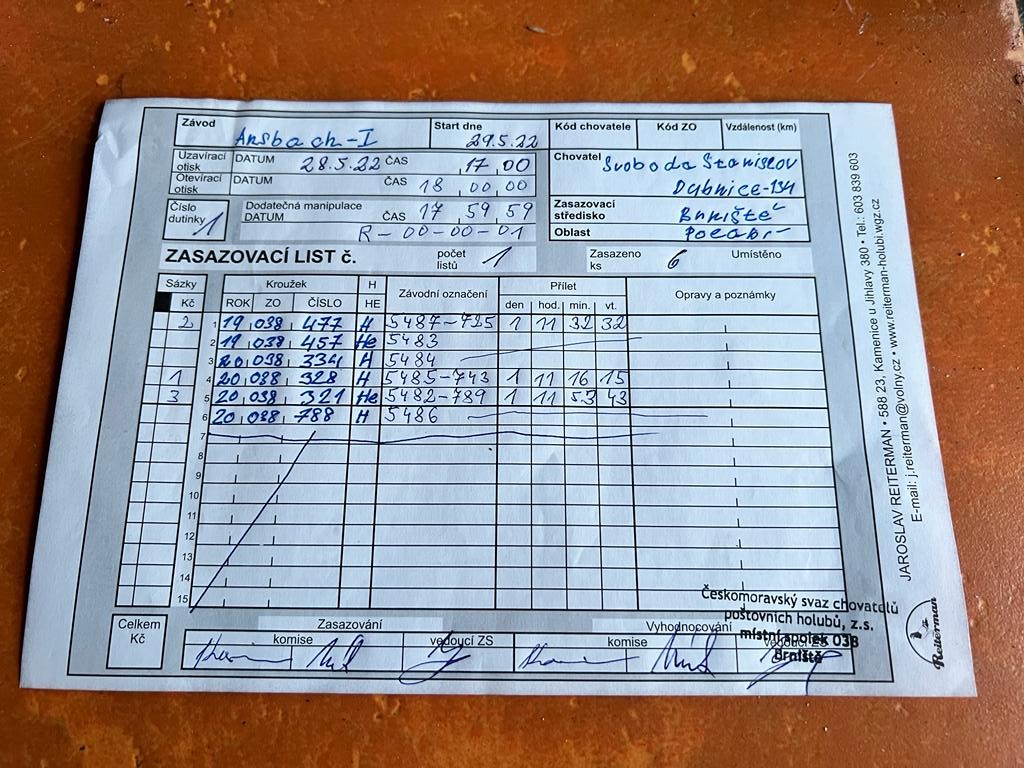 Závod Ansbach-I Start dne 29.5.22 Kód chovatele Kód ZO Vzdálenost (km)
Uzavírací otisk DATUM 28.5.22 ČAS 17,00
Otevírací otisk DATUM ČAS 18,00,00
Chovatel Svoboda Stanislav
Dubnice-134
Číslo dutinky 1 Dodatečná manipulace
DATUM ČAS 17,59,59
R-00-00-01
Zasazovací středisko Brniště
Oblast
ZASAZOVACÍ LIST č. počet listů 1 Zasazeno ks 6 Umístěno
Sázky Kroužek H Závodní označení Přílet Opravy a poznámky
Kč ROK ZO ČÍSLO HE den hod. min. vt.
2 1 19 038 477 H 5487-725 1 11 32 32
2 19 038 457 He 5483
3 20 038 334 H 5484
1 4 20 038 328 H 5485-743 1 11 16 15
3 5 20 038 321 He 5482-789 1 11 53 43
6 20 038 788 H 5486
7
8
9
10
11
12
13
14
15
Celkem Kč Zasazování Vyhodnocování
komise vedoucí ZS komise vedoucí ZS
Českomoravský svaz chovatelů
poštovních holubů, z.s.
místní spolek 03B
Brniště
JAROSLAV REITERMAN • 588 23, Kamenice u Jihlavy 380 • Tel.: 603 839 603
E-mail: j.reiterman@volny.cz • www.reiterman-holubi.wgz.cz
Reiterman